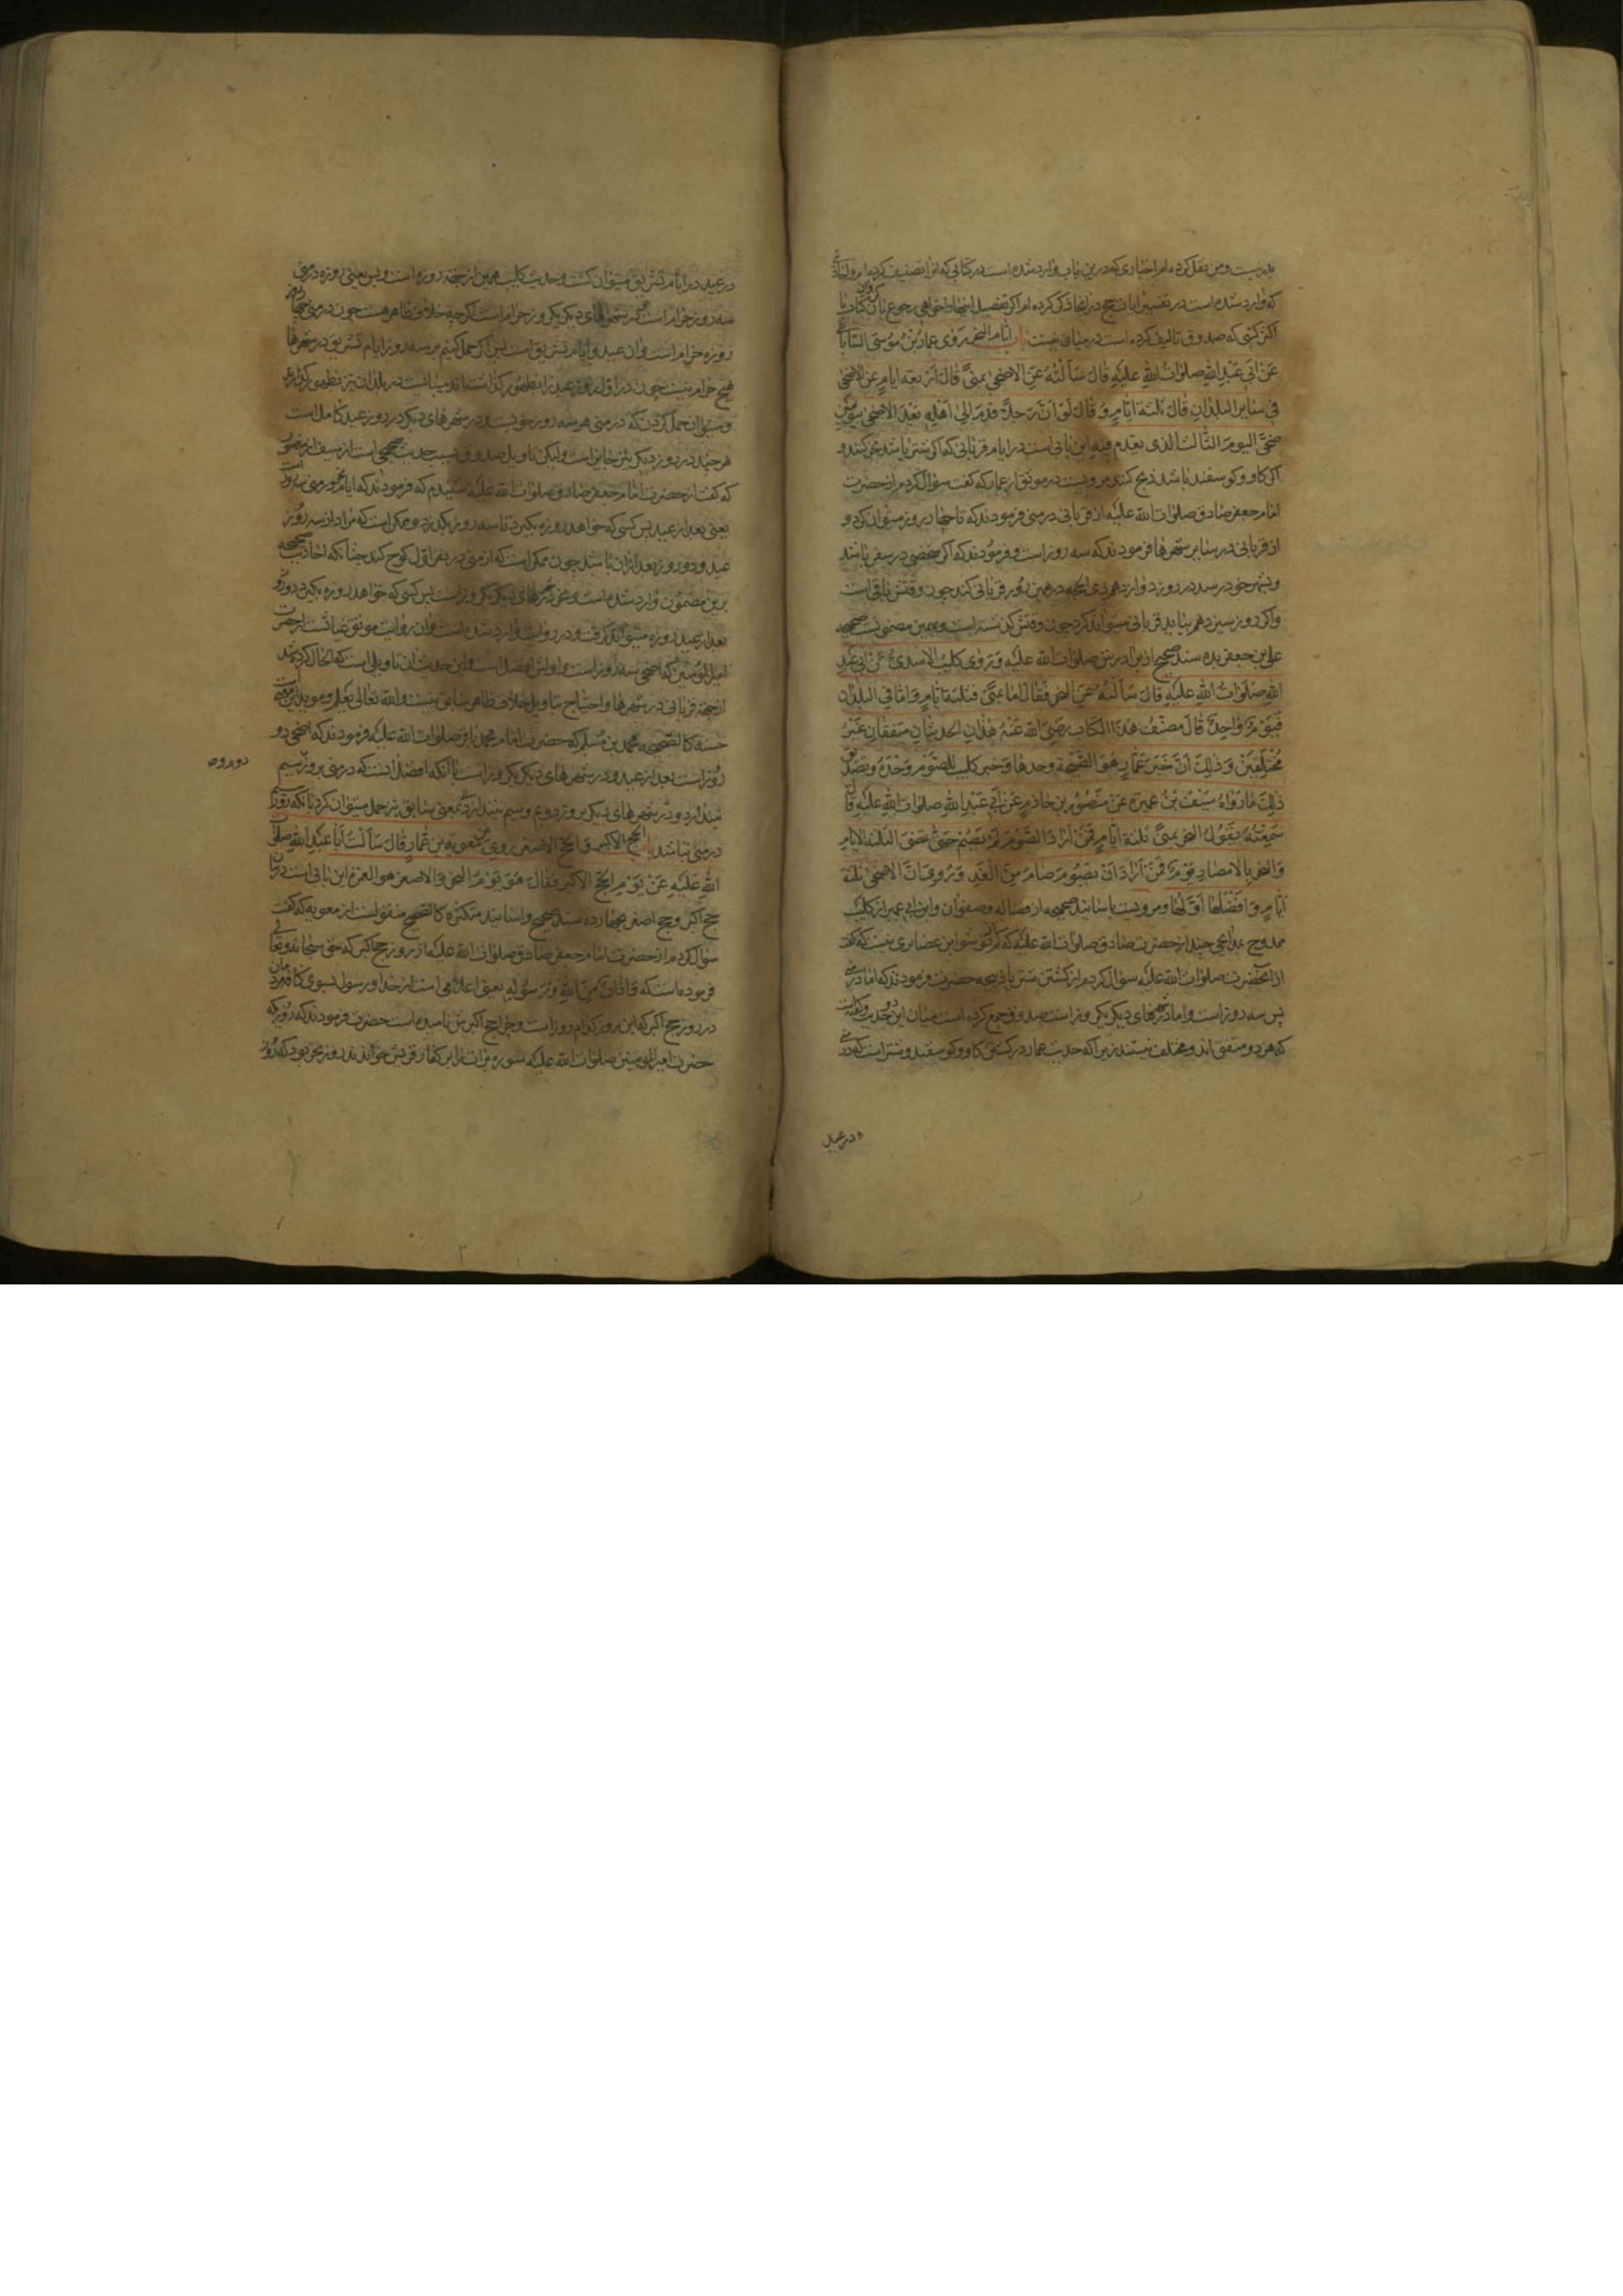 بد نیست و من نقل کرده‌ام اخباری که درین باب وارد شده است در کتابی که انرا تصنیف کرده‌ام و اخباری
که وارد شده است در تفسیر ایات حج در انجا ذکر کرده‌ام اکر تفصیل اینها خواهی رجوع بان کتاب
اکثر کتبی که صدوق تالیف کرده است در میان نیست باب ایام النحر روی عمار بن موسی الساباطی
عن ابی عبد الله صلوات الله علیه قال سالته عن الاضحی بمنی قال اربعة ایام و عن الاضحی
فی سایر البلدان قال ثلثة ایام و قال لو ان رجلا قدم الی اهله بعد الاضحی بیومین
ضحی الیوم الثالث الذی یقدم فیه این بابی است در ایام قربانی که اکر شتر باشد نحر کنند و
اکر کاو و کوسفند باشد ذبح کنند مرویست در موثق از عمار که کفت سؤال کردم از حضرت
امام جعفر صادق صلوات الله علیه از قربانی در منی فرمودند که تا چهار روز میتوان کرد و
از قربانی در سایر شهرها فرمودند که سه روز است و فرمودند که اکر شخصی در سفر باشد
و بشهر خود رسد در روز دوازدهم ذی الحجه در همین روز قربانی کند چون وقتش باقی است
و اکر روز سیزدهم بیاید قربانی میتواند کرد چون وقتش کذشته است و بهمین مضمونست صحیحه
علی بن جعفر بده سند صحیح از برادرش صلوات الله علیه و روی کلیب الاسدی عن ابی عبد
الله صلوات الله علیه قال سالته عن النحر فقال اما بمنی فثلثة ایام و اما فی البلدان
فیوم واحد قال مصنف هذا الکتاب رضی الله عنه هذان الحدیثان متفقان غیر
مختلفین و ذلک ان خبر عمار هو للضحیة وحدها و خبر کلیب للصوم وحده و تصدیق
ذلک ما رواه سیف بن عمیرة عن منصور بن حازم عن ابی عبد الله صلوات الله علیه قال
سمعته یقول النحر بمنی ثلثة ایام فمن اراد الصوم لم یصم حتی تمضی الثلثة الایام
والنحر بالامصار یوم فمن اراد ان یصوم صام من الغد و روی ان الاضحی ثلثة
ایام و افضلها اولها و مرویست باسانید صحیحه از فضاله و صفوان و ابن ابی عمیر از کلیب
ممدوح بمدایحی چند از حضرت صادق صلوات الله علیه که کفت
از انحضرت صلوات الله علیه سؤال کردم از کشتن شتر یا ذبیحه حضرت فرمودند که اما در منی
پس سه روز است و اما در شهرهای دیکر یکروز است صدوق جمع کرده است میان این دو حدیث
که هر دو متفق اند و مختلف نیستند زیرا که حدیث عمار در کشتن کاو و کوسفند و شتر است که در منی
در عید
در عید در ایام تشریق میتوان کشت و حدیث کلیب همین از جهة روزه است و بس یعنی روزه در منی
سه روز حرام است و در شهرهای دیکر یکروز حرام است اکر چه خلاف ظاهر هست چون در منی چهار روز
روزه حرام است و ان عید و ایام تشریق است پس اکر حمل کنیم بر سه روز ایام تشریق در شهرها
هیچ حرام نیست چون در اول روز عید را بظهور کذاشته‌اند میبایست در بلدان نیز بظهور کذارند
و میتوان حمل کردن که در منی هر سه روز خوبست و در شهرهای دیکر در روز عید کاملست
هر چند در روز دیکر نیز جایز است ولیکن تاویل صدوق بسبب حدیث صحیحی است از سیف از منصور
که کفت از حضرت امام جعفر صادق صلوات الله علیه شنیدم که فرمودند که ایام نحر در منی سه روز است
یعنی بعد از عید پس کسی که خواهد روزه بکیرد تا سه روز بکذرد و ممکن است که مراد از سه روز
عید و دو روز بعد از ان باشد چون ممکن است که از منی در نفر اول کوچ کند چنانکه احادیث صحیحه
برین مضمون وارد شده است و نحر در شهرهای دیکر یکروز است پس کسی که خواهد روزه بکیرد در روز
بعد از عید روزه میتواند کرفت و در روایت وارد شده است و ان روایت موثق غیاثست از حضرت
امیر المؤمنین که اضحی سه روز است و اولش افضل است و این حدیث ان تاویلی است که الحال کردیم
از جهة قربانی در شهرها و احتیاج بتاویل خلاف ظاهر سابق نیست و الله تعالی یعلم و مؤید این معنی است
حسنه کالصحیحه محمد بن مسلم که حضرت امام محمد باقر صلوات الله علیه فرمودند که اضحی دو
روز است بعد از عید و در شهرهای دیکر یکروز است با آنکه افضل انست که در منی بروز سیم
نیندازد و در شهرهای دیکر بروز دویم و سیم نیندازد و بمعنی سابق نیز حمل میتوان کرد بانکه روز
در منی نباشد باب الحج الاکبر و الحج الاصغر روی عن معویة بن عمار قال سالت ابا عبد الله صلوات
الله علیه عن یوم الحج الاکبر فقال هو یوم النحر و الاصغر هو العمرة این بابی است در بیان
حج اکبر و حج اصغر بچهارده سند صحیح و اسانید متکثره کالصحیح منقولست از معویه که کفت
سؤال کردم از حضرت امام جعفر صادق صلوات الله علیه از روز حج اکبر که حق سبحانه و تعالی
فرموده است که و اذان من الله و رسوله یعنی اعلامی است از خدا و رسول بسوی کافه مردمان
در روز حج اکبر که این روز کدام روز است و چرا حج اکبرش نامیده است حضرت فرمودند که روزیکه
حضرت امیر المومنین صلوات الله علیه سوره برات را بر کفار قریش خواندند روز نحر بود که روز